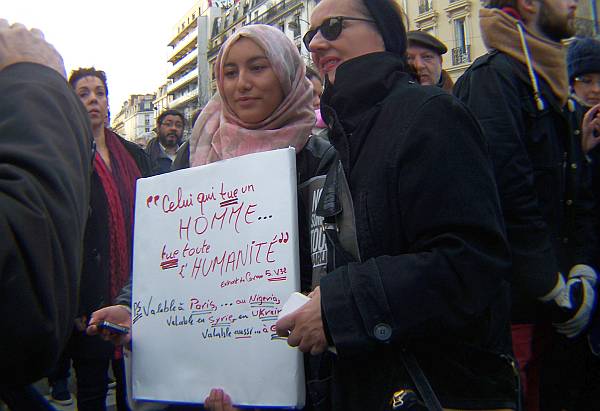 "Celui qui tue un
HOMME...
tue toute
l'HUMANITÉ"
extrait du Coran 5.V32
PS Valable à Paris,... au Nigeria,
valable en Syrie, en UKrain
Valable aussi... à